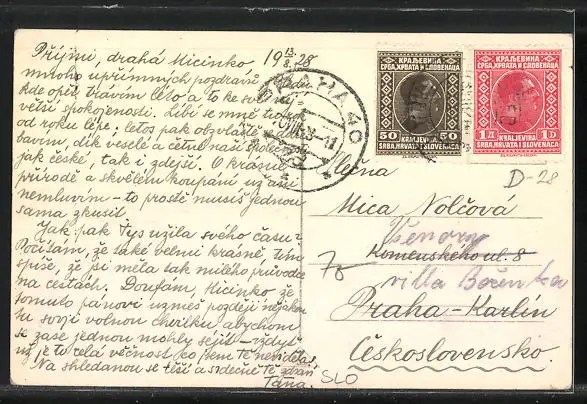 Přijmi, drahá Micinko 19 13/8. 28
mnoho upřímných pozdravů
kde opět trávím léto a to ke své
větší spokojenosti. Líbí se mně tu
od roku lépe; letos pak obzvláště
bavím, dík veselé a četné naší společnosti
jak české, tak i zdejší. O krásné
přírodě a skvělém koupání už ani
nemluvím – to prostě musíš jednou
sama zkusit
Jak pak Tys užila svého času?
Počítám, že také velmi krásně, tím
spíše, že jsi měla tak milého průvodce
na cestách. Doufám, Micinko, že
tomuto pánovi uzmeš později nějakou
tu svoji volnou chvilku abychom
se zase jednou mohly sejít – vždyť
už je to celá věčnost co jsem Tě neviděla.
Na shledanou se těší a srdečně Tě zdraví
Táňa.
SLO
КРАЉЕВИНА
СРБА, ХРВАТА И СЛОВЕНАЦА
50 50
KRALJEVINA
SRBA, HRVATA I SLOVENACA
КРАЉЕВИНА
СРБА, ХРВАТА И СЛОВЕНАЦА
1Д 1D
KRALJEVINA
SRBA, HRVATA I SLOVENACA
PRAHA 40
D-28
Slečna
Mica Volčová
Všenory
Komenského ul. 8
villa Boženka
Praha-Karlín
Československo.